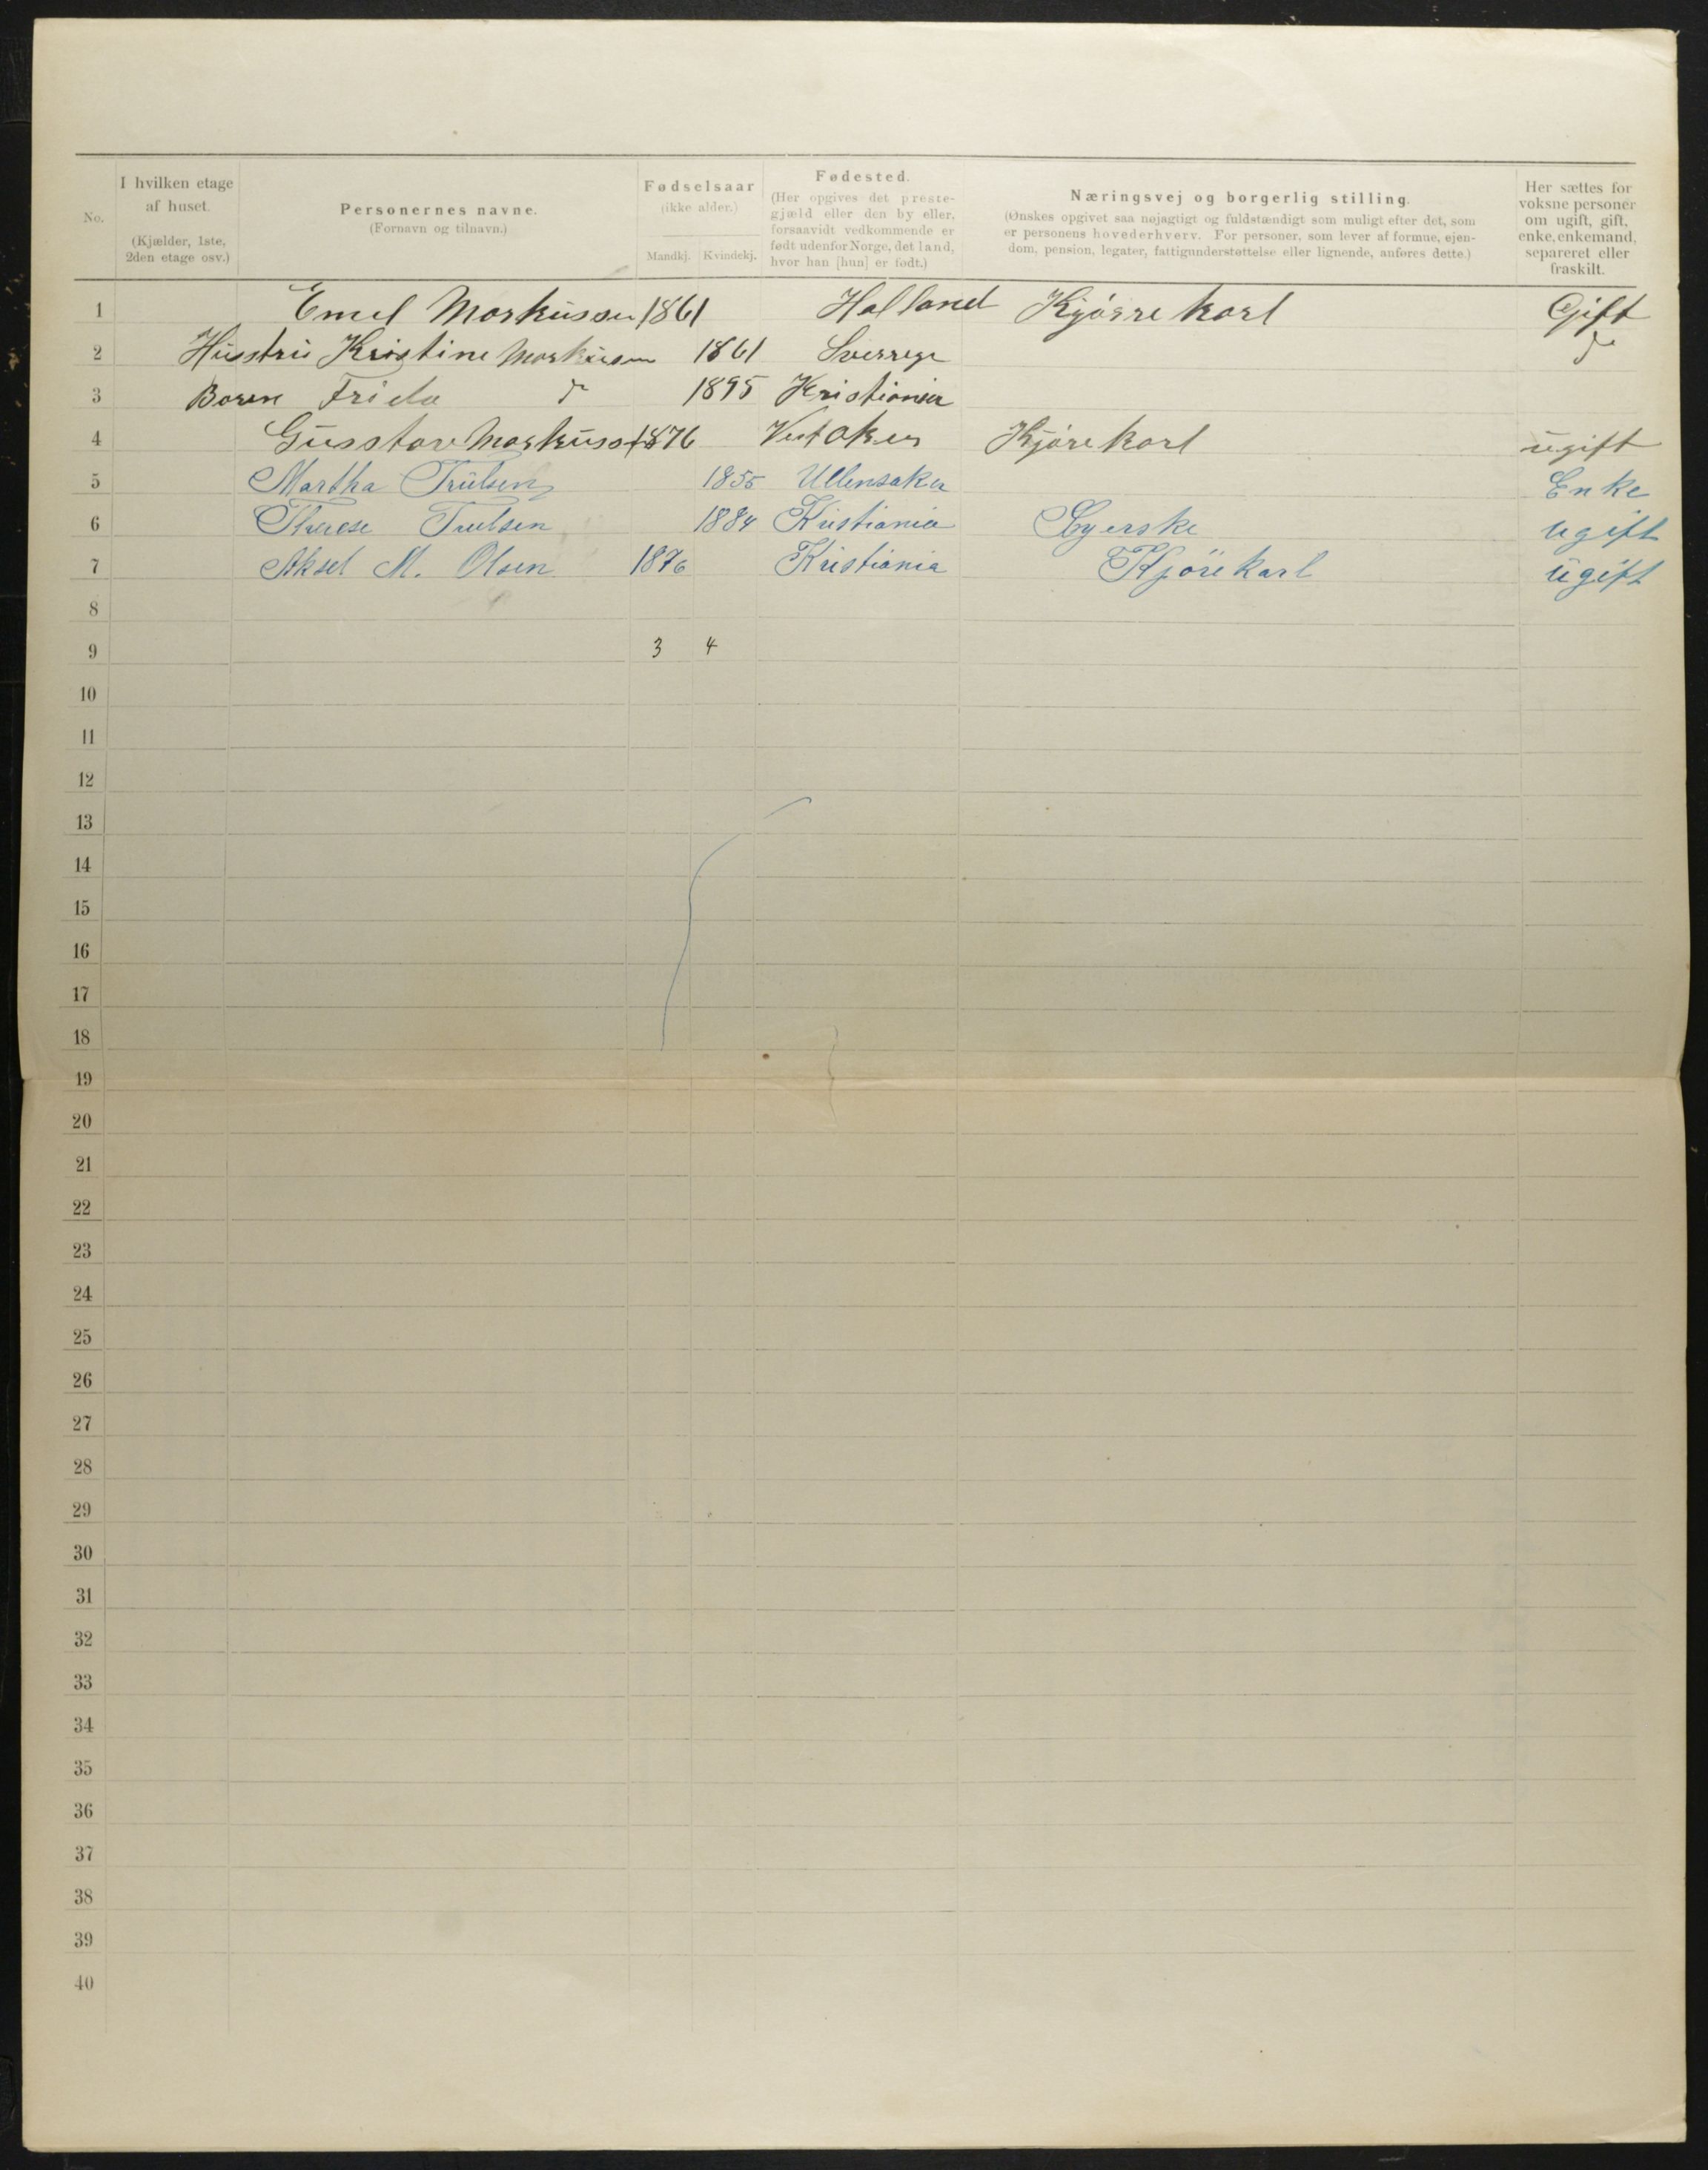 No.
I hvilken etage
af huset.
(Kjælder, 1ste,
2den etage osv.)
Personernes navne.
(Fornavn og tilnavn.)
Fødselsaar
(ikke alder.)
Mandkj. Kvindekj.
Fødested.
(Her opgives det preste-
gjæld eller den by eller,
forsaavidt vedkommende er
født udenfor Norge, det land,
hvor han [hun] er født.)
Næringsvej og borgerlig stilling.
(Ønskes opgivet saa nøjagtigt og fuldstændigt som muligt efter det, som
er personens hovederhverv. For personer, som lever af formue, ejen-
dom, pension, legater, fattigunderstøttelse eller lignende, anføres dette.)
Her sættes for
voksne personer
om ugift, gift,
enke, enkemand,
separeret eller
fraskilt.
1 Emel Markussen 1861 Halland Kjørre karl Gift
2 Husstru Kristine Markussen 1861 Sverrege do
3 Boren Frida do 1895 Kristiania
4 Gusstav Markuss 1876 Vest Aker Kjøre karl ugift
5 Martha Trulsen 1855 Ullensaker Enke
6 Therese Trulsen 1884 Kristiania Syerske ugift
7 Aksel M. Olsen 1876 Kristiania Kjørekarl ugift
8
9 3 4
10
11
12
13
14
15
16
17
18
19
20
21
22
23
24
25
26
27
28
29
30
31
32
33
34
35
36
37
38
39
40